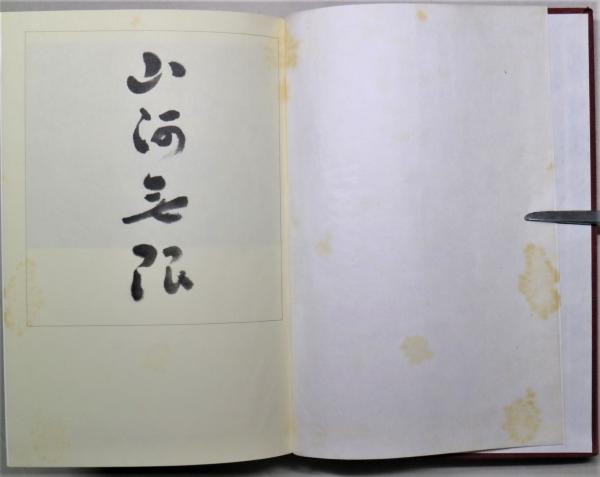 山河無限